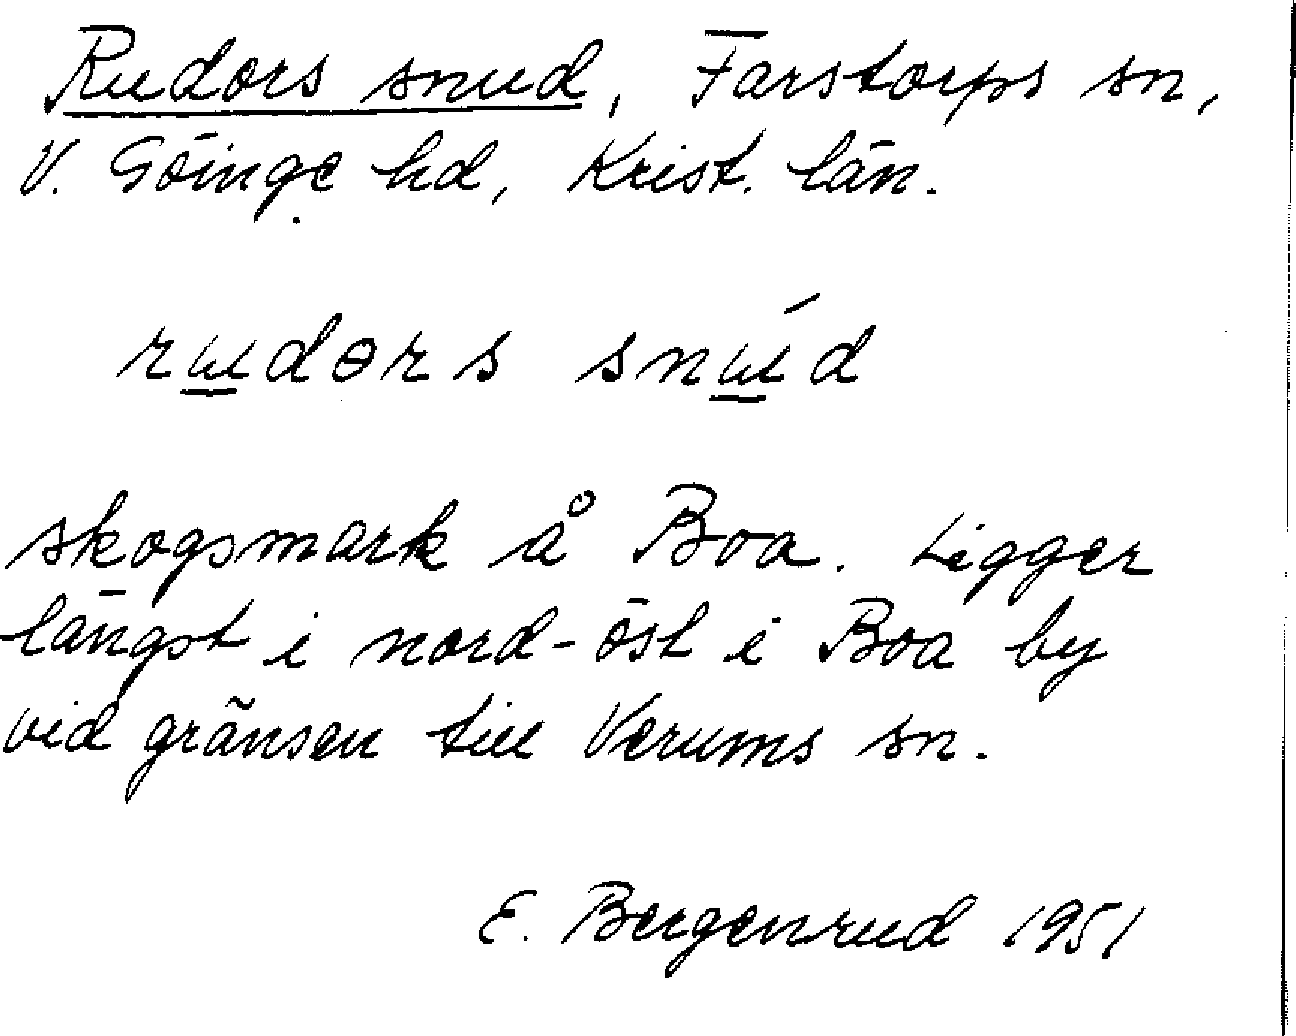 Rudors snud, Farstorps sn,
V. Göinge hd, Krist. län.
skogsmark å Boa. Ligger
längst i nord-öst i Boa by
vid gränsen till Verums sn.
E. Bergenrud 1951